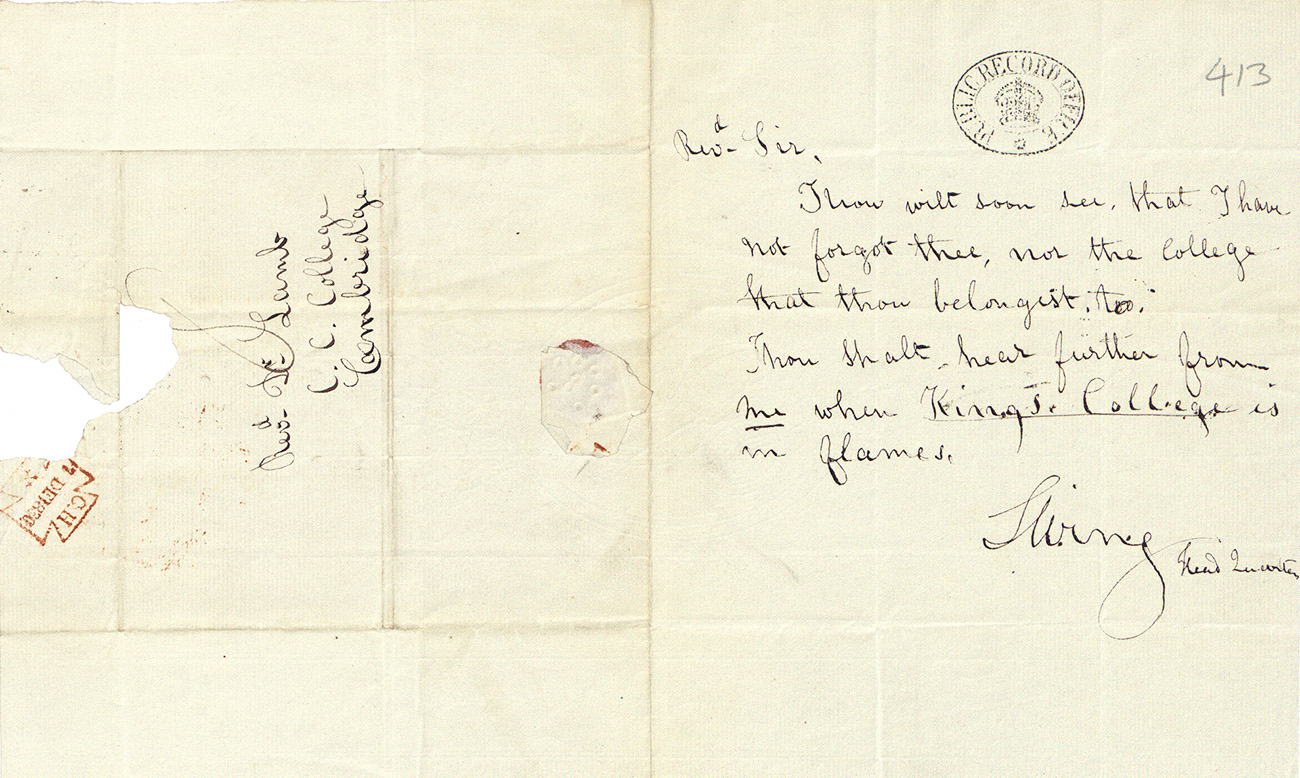 Revd Dr Lamb
C. C. College
Cambridge
C.H.
DE 1830
PUBLIC RECORD OFFICE
413
Revd Sir,
Thou wilt soon see, that I have
not forgot thee, nor the College
that thou belongist, to.
Thou shalt hear further from
me when King's College is
in flames.
Swing
Head Quarters